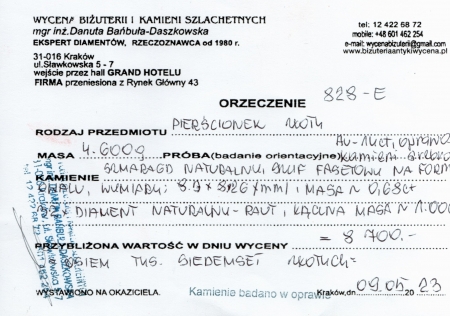 WYCENA BIŻUTERII I KAMIENI SZLACHETNYCH
mgr inż.Danuta Bańbuła-Daszkowska
EKSPERT DIAMENTÓW, RZECZOZNAWCA od 1980 r.
tel: 12 422 68 72
mobile: +48 601 462 254
e-mail: wycenabizuterii@gmail.com
www.bizuteriaantykiwycena.pl
31-016 Kraków
ul.Sławkowska 5 - 7
wejście przez hall GRAND HOTELU
FIRMA przeniesiona z Rynek Główny 43
ORZECZENIE 828-E
RODZAJ PRZEDMIOTU PIERŚCIONEK ZŁOTY
MASA 4.600g PRÓBA (badanie orientacyjne) kamieni srebro
SZMARAGD NATURALNY, SZLIF FASETOWY NA FORM
KAMIENIE
OWALU, WYMIARY: x 8,26 /mm/ i MASA ~ 0,68ct
DIAMENT NATURALNY - RAUT, ŁĄCZNA MASA ~ 1.00
PRZYBLIŻONA WARTOŚĆ W DNIU WYCENY = 8 700.-
OSIEM TYS. SIEDEMSET ZŁOTYCH=
WYSTAWIONO NA OKAZICIELA.
Kamienie badano w oprawie
Kraków,dn 09.05 20 23